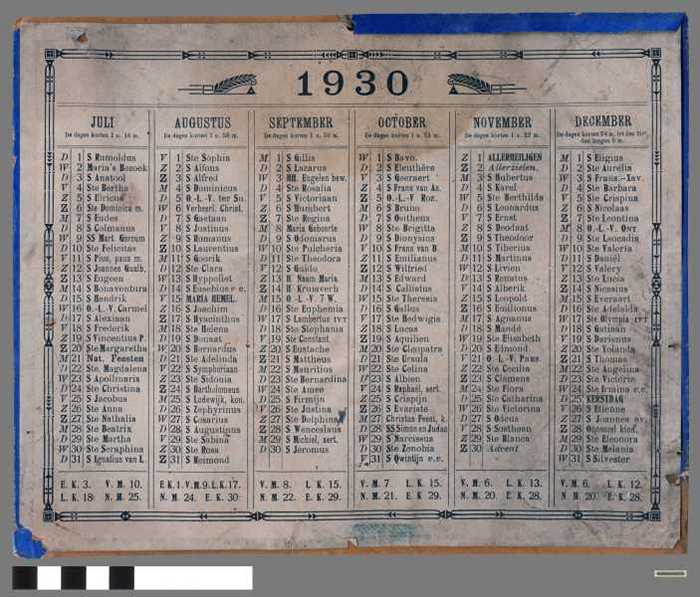 1930
JULI
D 1 S Rumoldus
W 2 Maria's Bezoek
D 3 S Anatool
V 4 Ste Bertha
Z 5 S Ulricus
Z 6 Ste Dominica m.
M 7 S Eudes
D 8 S Colmanus
W 9 SS Mart. Gorcum
D 10 Ste Felicitas
V 11 S Pius, paus m.
Z 12 S Joannes Gualb.
Z 13 S Eugeen
M 14 S Bonaventura
D 15 S Hendrik
W 16 O.-L.-V. Carmel
D 17 S Alexius
V 18 S Frederik
Z 19 S Vincentius P.
Z 20 Ste Margaretha
M 21 Nat. Feesten
D 22 Ste. Magdalena
W 23 S Apollinaris
D 24 Ste Christina
V 25 S Jacobus
Z 26 Ste Anna
Z 27 Ste Nathalia
M 28 Ste Beatrix
D 29 Ste Martha
W 30 Ste Seraphina
D 31 S Ignatius van L
E. K. 3. V. M. 10.
L. K. 18 N. M. 25.
AUGUSTUS
V 1 Ste Sophia
Z 2 S Alfons
Z 3 S Alfred
M 4 S Dominicus
D 5 O.-L.-V. ter Sn.
W 6 Verheerl. Christ.
D 7 S Gaetaan
V 8 S Justinus
Z 9 S Romanus
Z 10 S Laurentius
M 11 S Goorik
D 12 Ste Clara
W 13 S Hyppoliet
D 14 S Eusebius v. c.
V 15 MARIA HEMEL.
Z 16 S Joachim
Z 17 S Hyacinthus
M 18 Ste Helena
D 19 S Donaat
W 20 S Bernardus
D 21 Ste Adelinda
V 22 S Symphoriaan
Z 23 Ste Sidonia
Z 24 S Bartholomeus
M 25 S Lodewijk, kon.
D 26 S Zephyrinus
W 27 S Cesarius
D 28 S Augustinus
V 29 Ste Sabina
Z 30 Ste Rosa
Z 31 S Reimond
E K. 1. V. M. 9. L. K. 17.
N. M. 24. E. K. 30
SEPTEMBER
M 1 S Gillis
D 2 S Lazarus
W 3 HH. Engelen bew.
D 4 Ste Rosalia
V 5 S Victoriaan
Z 6 S Humbert
Z 7 Ste Regina
M 8 Maria Geboorte
D 9 S Odomarus
W 10 Ste Pulcheria
D 11 Ste Theodora
V 12 S Guido
Z 13 H Naam Maria
Z 14 H Kruisverh
M 15 O.-L.-V. 7 W.
D 16 Ste Euphemia
W 17 S Lambertus
D 18 Ste Stephania
V 19 Ste Constant.
Z 20 S Eustache
Z 21 S Mattheus
M 22 S Mauritius
D 23 Ste Bernardina
W 24 Ste Amee
D 25 S Firmijn
V 26 Ste Justina
Z 27 Ste Delphina
Z 28 S Wenceslaus
M 29 S Michiel, aert.
D 30 S Jeromus
V. M. 8. L. K. 15.
N. M. 22. E. K. 29.
OCTOBER
W 1 S Bavo.
D 2 S Eleuthère
V 3 S Geeraert
Z 4 S Frans van As.
Z 5 O.-L.-V Roz.
M 6 S Bruno
D 7 S Oostheus
W 8 Ste Brigitta
D 9 S Dionysius
V 10 S Frans van B
Z 11 S Emilianus
Z 12 S Wilfried
M 13 S Edward
D 14 S Calixtus
W 15 Ste Theresia
D 16 S Gallus
V 17 Ste Hedwigis
Z 18 S Lucas
Z 19 S Aquilien
M 20 Ste Cleopatra
D 21 Ste Ursula
W 22 Ste Celina
D 23 S Albien
V 24 S Raphael, aert.
Z 25 S Crispijn
Z 26 S Evariste
M 27 Christus Feest, k.
D 28 SS Simon en Judas
W 29 S Narcissus
D 30 Ste Zenobia
V 31 S Qwintijn v.v.
V. M. 7 L. K. 15.
N. M. 21. E. K. 29.
NOVEMBER
Z 1 ALLERHEILIGEN
Z 2 Allerzielen.
M 3 S Hubertus
D 4 S Karel
W 5 Ste Berthilda
D 6 S Leonardus
V 7 S Ernst
Z 8 S Deodaat
Z 9 S Theodoor
M 10 S Tiberius
D 11 S Martinus
W 12 S Livien
D 13 S Renatus
V 14 S Alberik
Z 15 S Leopold
Z 16 S Emilionus
M 17 S Agnanus
D 18 S Mandé
W 19 Ste Elisabeth
D 20 S Edmond
V 21 O.-L.-V Pres.
Z 22 Ste Cecilia
Z 23 S Clemens
M 24 Ste Flora
D 25 Ste Catharina
W 26 Ste Victorina
D 27 S Odocus
V 28 S Sosthoen
Z 29 Ste Blanca
Z 30 Advent
V. M. 6. L. K. 13.
N. M. 20. E. K. 28.
DECEMBER
M 1 S Eligius
D 2 Ste Aurelia
W 3 S Frans.-Xav.
D 4 Ste Barbara
V 5 Ste Crispina
Z 6 S Nicolaas
Z 7 Ste Leontina
M 8 O.-L.-V Ont
D 9 Ste Leocadia
W 10 Ste Valeria
D 11 S Daniel
V 12 S Valery
Z 13 Ste Lucia
Z 14 S Nicasius
M 15 S Everaart
D 16 Ste Adelaïda
W 17 Ste Olympia
D 18 S Gatiaan
V 19 S Darienus
Z 20 Ste Yolanda
Z 21 S Thomas
M 22 Ste Angelina
D 23 Ste Victorie
W 24 Ste Ermina v.v.
D 25 KERSTDAG
V 26 S Etienne
Z 27 S Joannes ev.
Z 28 Onnoozel kind.
M 29 Ste Eleonora
D 30 Ste Melania
W 31 S Silvester
V. M. 6. L. K. 12.
N. M. 20. E. K. 28.